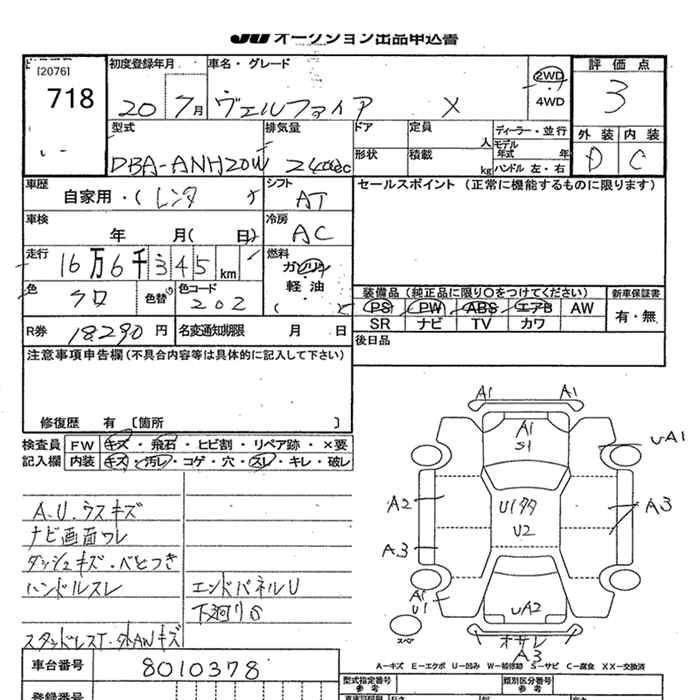 JU オークション出品申込書
[2076]
718
初度登録年月
20 7月
車名・グレード
ヴェルファイア X
2WD
4WD
評価点
3
型式
DBA-ANH20W
排気量
2400cc
ドア
形状
定員 人
積載 kg
ディーラー・並行
モデル年式 年
ハンドル 左・右
外装 内装
D C
車歴
自家用・(レンタ
シフト
AT
セールスポイント(正常に機能するものに限ります)
車検
年 月( 日)
冷房
AC
走行
16万6千345km
燃料
ガソリン
軽油
( )
色
クロ
色替
色コード
202
装備品(純正品に限り○をつけてください)
PS PW ABS エアB AW
SR ナビ TV カワ
新車保証書
有・無
R券 18290円
名変通知期限 月 日
後日品
注意事項申告欄(不具合内容等は具体的に記入して下さい)
修復歴 有 〔箇所 〕
検査員
記入欄
FW キズ・飛石・ヒビ割・リペア跡・×要
内装 キズ・汚レ・コゲ・穴・スレ・キレ・破レ
A.U.ウスキズ
ナビ画面ワレ
ダッシュキズ・ベとつき
ハンドルスレ
エンドパネルU
下廻りS
スタッドレスT・外AWキズ
A1 A1
A1
S1
UA1
A2
U1タタ
U2
A3
A3
A1
U1
UA2
スペア
オサレ
A3
A−キズ E−エクボ U−凹み W−補修跡 S−サビ C−腐食 XX−交換済
車台番号
8010378
登録番号
型式指定番号
参考
類別区分番号
参考